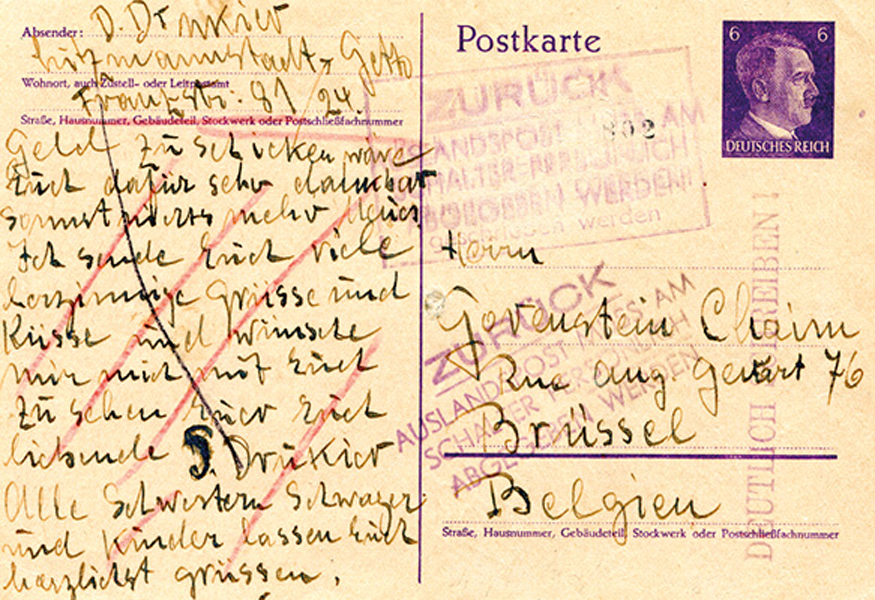 Absender: D. Drukier
Litzmannstadt, Getto
Wohnort, auch Zustell- oder Leitpostamt
Franzstr. 81/24.
Straße, Hausnummer, Gebäudeteil, Stockwerk oder Postschließfachnummer
Geld zu schicken wäre
Euch dafür sehr dankbar
sonst nichts mehr Neues
Ich sende Euch viele
herzinnige Grüsse und
Küsse und wünsche
mir mich mit Euch
zu sehen Euer Euch
liebende D. Drukier
Alle Schwestern Schwager
und Kinder lassen Euch
herzlichst grüssen.
Postkarte
6 6
DEUTSCHES REICH
ZURÜCK
AUSLANDSPOST MUSS AM
SCHALTER PERSÖNLICH
ABGEGEBEN WERDEN!
geschrieben werden
802
Herrn
Govenstein Chaim
Rue Aug Gevart 76
Brüssel
Belgien
Straße, Hausnummer, Gebäudeteil, Stockwerk oder Postschließfachnummer
ZURÜCK
AUSLANDSPOST MUSS AM
SCHALTER PERSÖNLICH
ABGEGEBEN WERDEN
DEUTLICH SCHREIBEN!